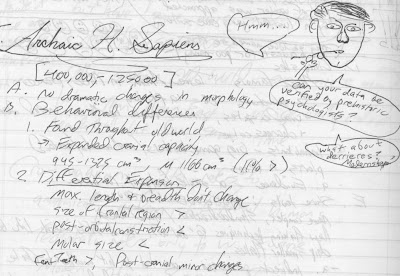 I. Archaic H. Sapiens
[400,000,-125000]
A. No dramatic changes in morphology
B. Behavioral differences
1. Found throughout old world
→ Expanded cranial capacity
945-1325 cm³, μ 1166 cm³ (11% >)
2. Differential Expansion
max. length & breadth don't change
size of frontal region >
post-orbital constriction <
Molar size <
Teeth >, Post-cranial minor changes
Hmm...
Can your data be
verified by prehistoric
psychologists?
What about
derrieres?